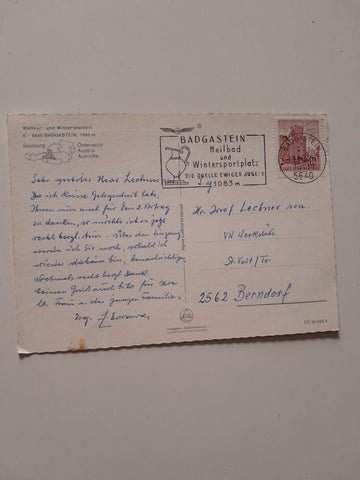 Weltkur- und Wintersportort
A - 5640 BADGASTEIN, 1083 m
Salzburg
Österreich
Austria
Autriche
BADGASTEIN
Heilbad
und
Wintersportplatz
DIE QUELLE EWIGER JUGEND
1083 m
5640
Sehr geehrter Herr Lechner
Da ich keine Gelegenheit hatte,
Ihnen nur noch für den 2. Betrag
zu danken, so möchte ich es jetzt
recht herzl. tun. Über den Eingang
werde ich Sie noch, sobald ich
wieder daheim bin, benachrichtigen
Nochmals recht herzl. Dank
keinen Gruß auch bitte für Ihre
lb. Frau u. die junge Familie.
Hr. Josef Lechner sen.
VW Werkstätte
St. Veit/Tr.
2562 Berndorf